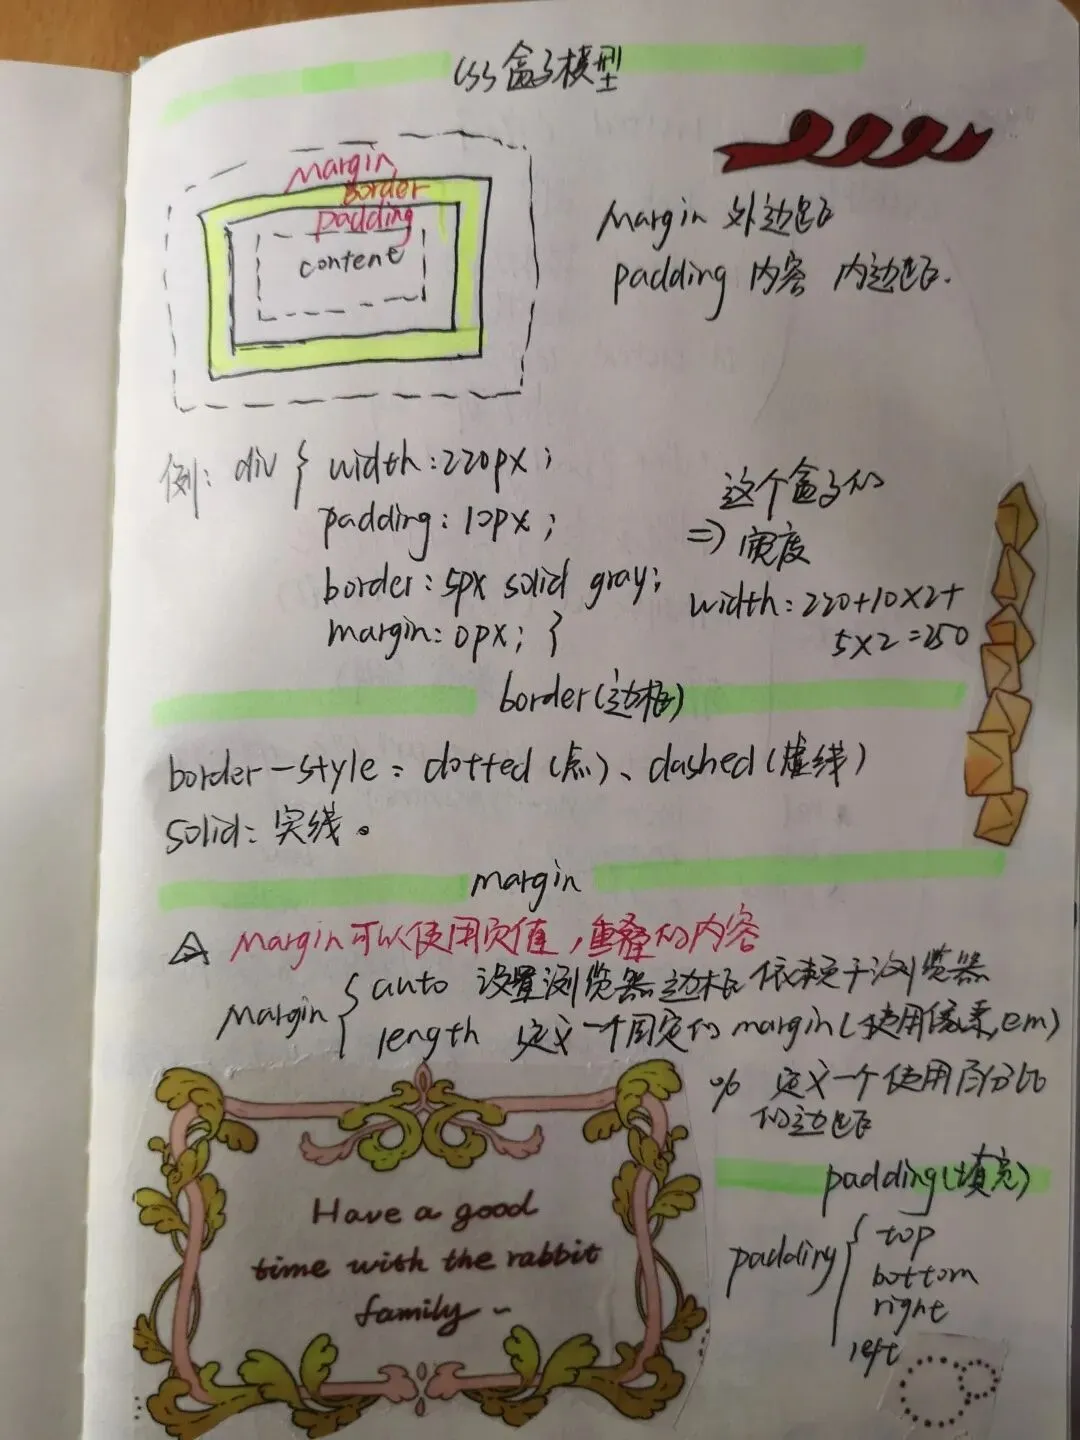 CSS盒子模型
Margin
Border
padding
content
Margin 外边距
padding 内容 内边距.
例: div { width:220px;
padding:10px;
border:5px solid gray;
margin:0px; }
这个盒子的
=> 宽度
width:220+10×2+
5×2=250
border(边框)
border-style: dotted(点)、dashed(虚线)
solid: 实线。
margin
Margin可以使用负值,重叠的内容
Margin { auto 设置浏览器边框 依赖于浏览器
length 定义一个固定的margin(使用像素,em)
% 定义一个使用百分比
的边距
padding(填充)
padding { top
bottom
right
left
Have a good
time with the rabbit
family~